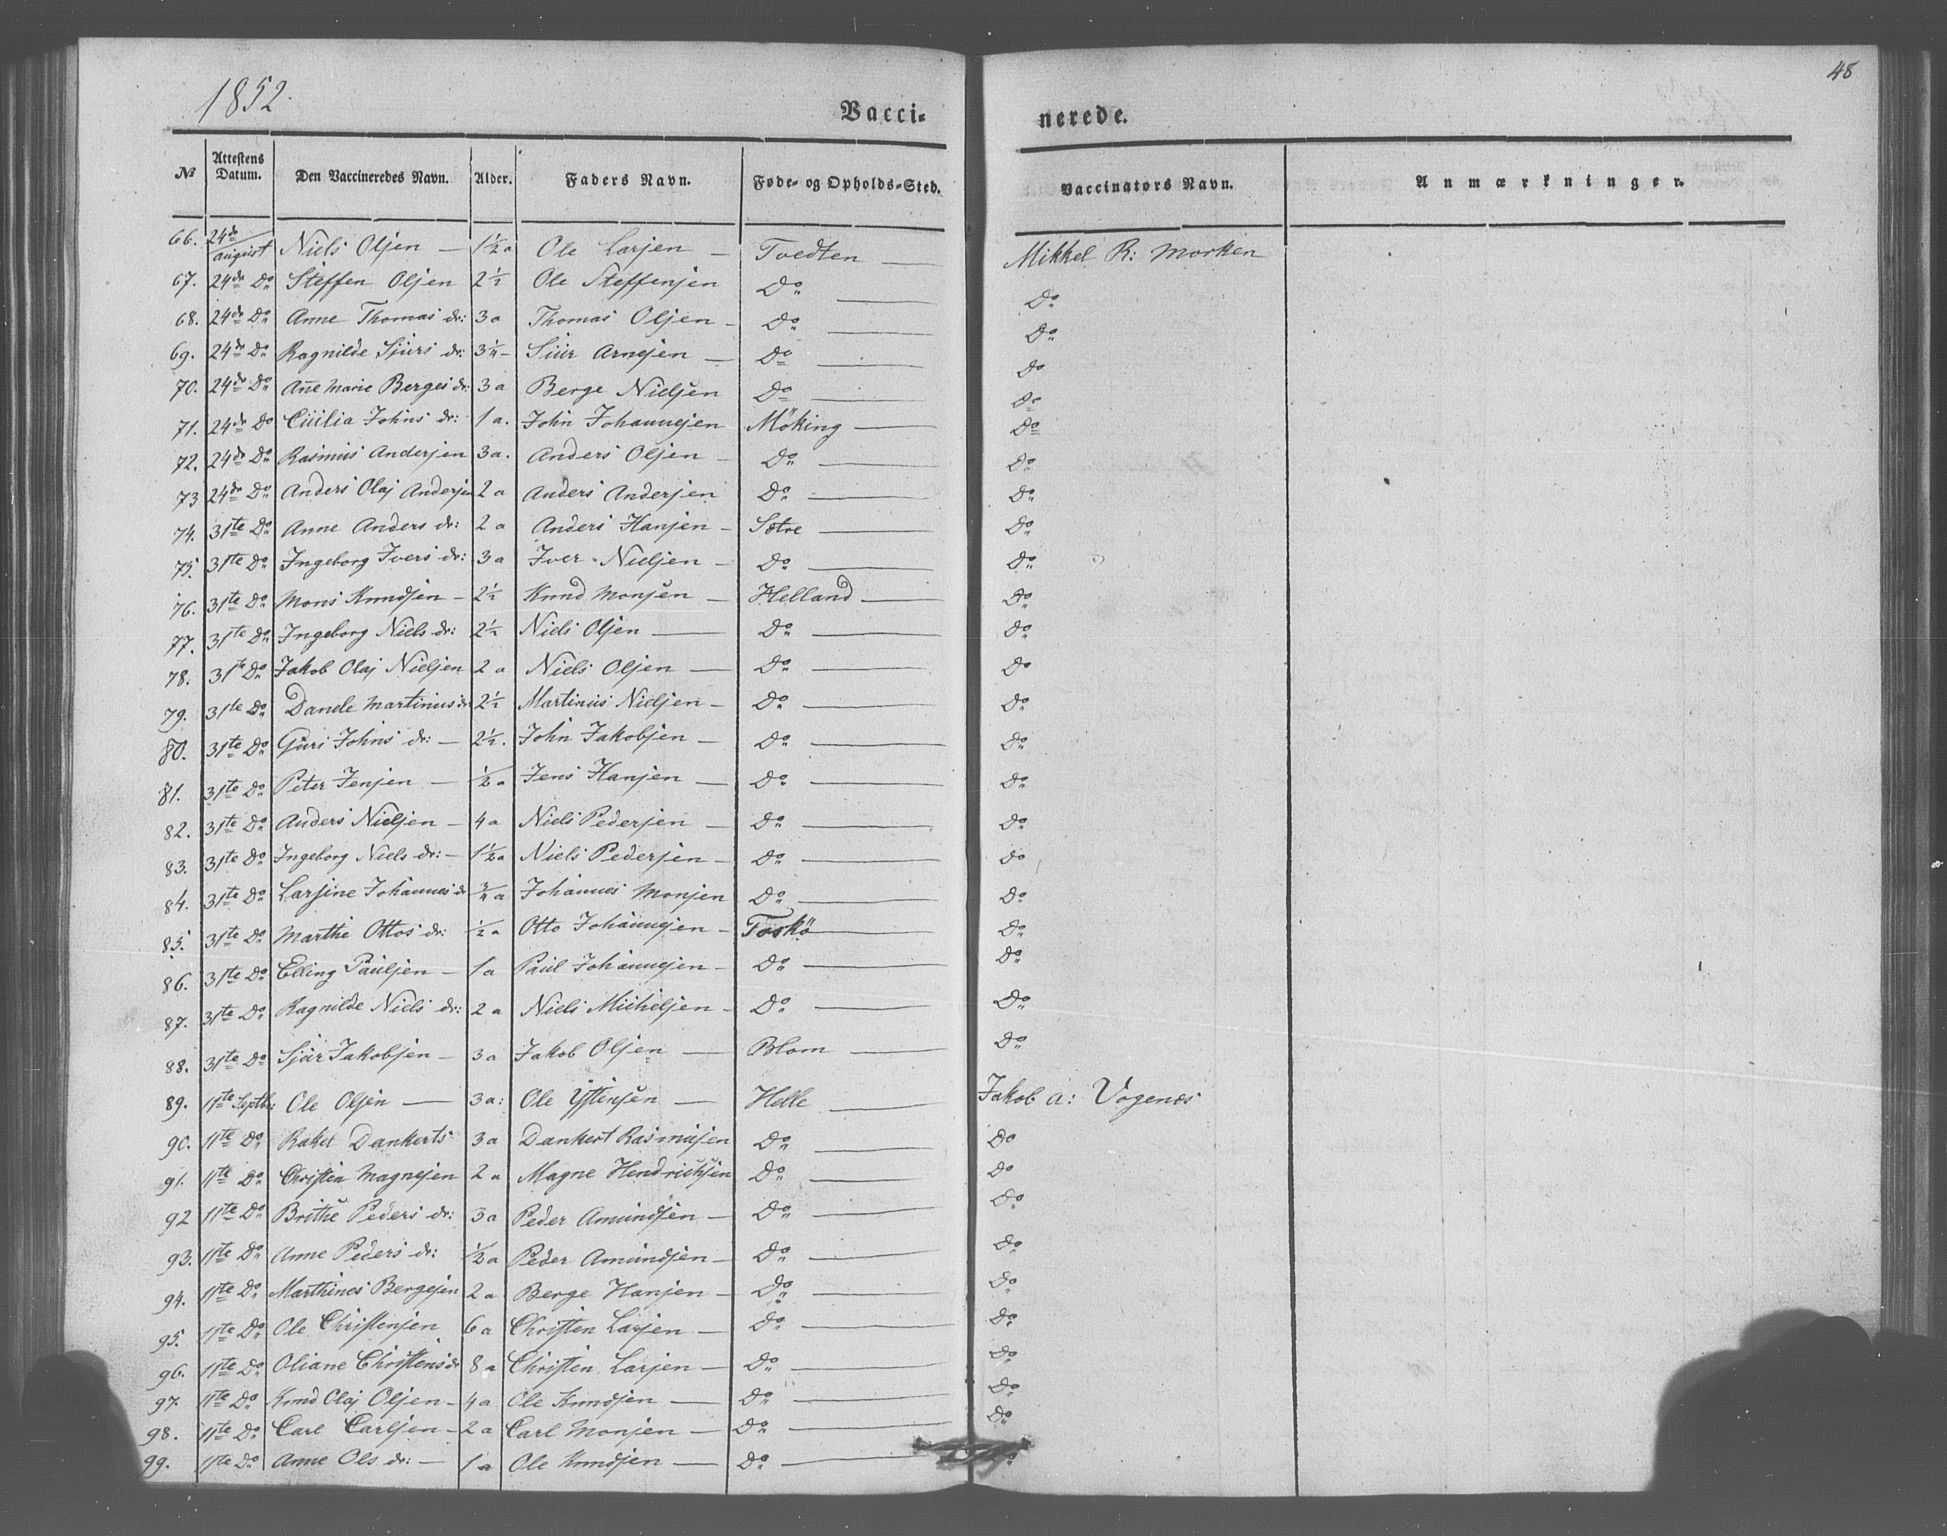 1852.
48
Vacci-
nerede.
№ Attestens Datum. Den Vaccineredes Navn. Alder. Faders Navn. Føde- og Opholds-Sted. Vaccinators Navn. Anmærkninger.
66. 24de August Niels Olsen — 1½ a Ole Larsen — Tvedten — Mikkel R: Morken
67. 24de Do Steffen Olsen 2½ Ole Steffensen Do — Do
68. 24de Do Anne Thomas dr: 3 a Thomas Olsen — Do — Do
69. 24de Do Ragnilde Sjurs dr: Siur Arnesen — Do — Do
70. 24de Do Ane Marie Berges dr: 3 a Berge Nielsen Do — Do
71. 24de Do Cicilia Johns dr: 1 a. John Johannesen Möking — Do
72. 24de Do Rasmus Andersen 3 a. Anders Olsen — Do — Do
73 24de Do Anders Olaj Andersen 2 a Anders Andersen Do — Do
74. 31te Do Anne Anders dr: 2 a Anders Hansen — Sætre — Do
75. 31te Do Ingeborg Ivers dr: 3 a Iver Nielsen — Do — Do
76. 31te Do Mons Knudsen — 2½ Knud Monsen — Helland — Do
77. 31te Do Ingeborg Niels dr: 2½ Niels Olsen — Do — Do
78. 31te Do Jakob Olaj Nielsen 2 a Niels Olsen — Do — Do
79. 31te Do Danele Martinus dr 2½ Martinus Nielsen — Do — Do
80. 31te Do Guri Johns dr: — 2½. John Jakobsen — Do — Do
81. 31te Do Peter Jensen — ½ a Jens Hansen — Do — Do
82. 31te Do Anders Nielsen — 4 a Niels Pedersen — Do — Do
83. 31te Do Ingeborg Niels dr: — 1½ a Niels Pedersen — Do — Do
84. 31te Do Larsine Johannes dr Johannes Monsen Do — Do
85. 31te Do Marthe Ottos dr: ½ a Otto Johannesen — Toskö — Do
86. 31te Do Elling Paulsen — 1 a Paul Johannesen — Do — Do
87. 31te Do Ragnilde Niels dr: 2 a Niels Michelsen — Do — Do
88. 31te Do Sjur Jakobsen — 3 a Jakob Olsen — Blom — Do
89. 11te Septbr: Ole Olsen — 3 a: Ole Ystensen — Helle — Jakob A: Vogenæs
90. 11te Do Rakel Dankerts 3 a Dankert Rasmusen Do — Do
91. 11te Do Christen Magnesen 2 a Magne Hendrichsen Do — Do
92 11te Do Brithe Peders dr: 3 a Peder Amundsen — Do — Do
93. 11te Do Anne Peders dr: ½ a Peder Amundsen — Do — Do
94. 11te Do Marthines Bergesen 2 a Berge Hansen — Do — Do
95. 11te Do Ole Christensen 6 a Christen Larsen — Do — Do
96. 11te Do Oliane Christens dr 8 a Christen Larsen — Do — Do
97. 11te Do Knud Olaj Olsen — 4 a Ole Knudsen — Do — Do
98. 11te Do Carl Carlsen — 2 a Carl Monsen — Do — Do
99. 11te Do Anne Ols dr: — 1 a Ole Knudsen — Do — Do